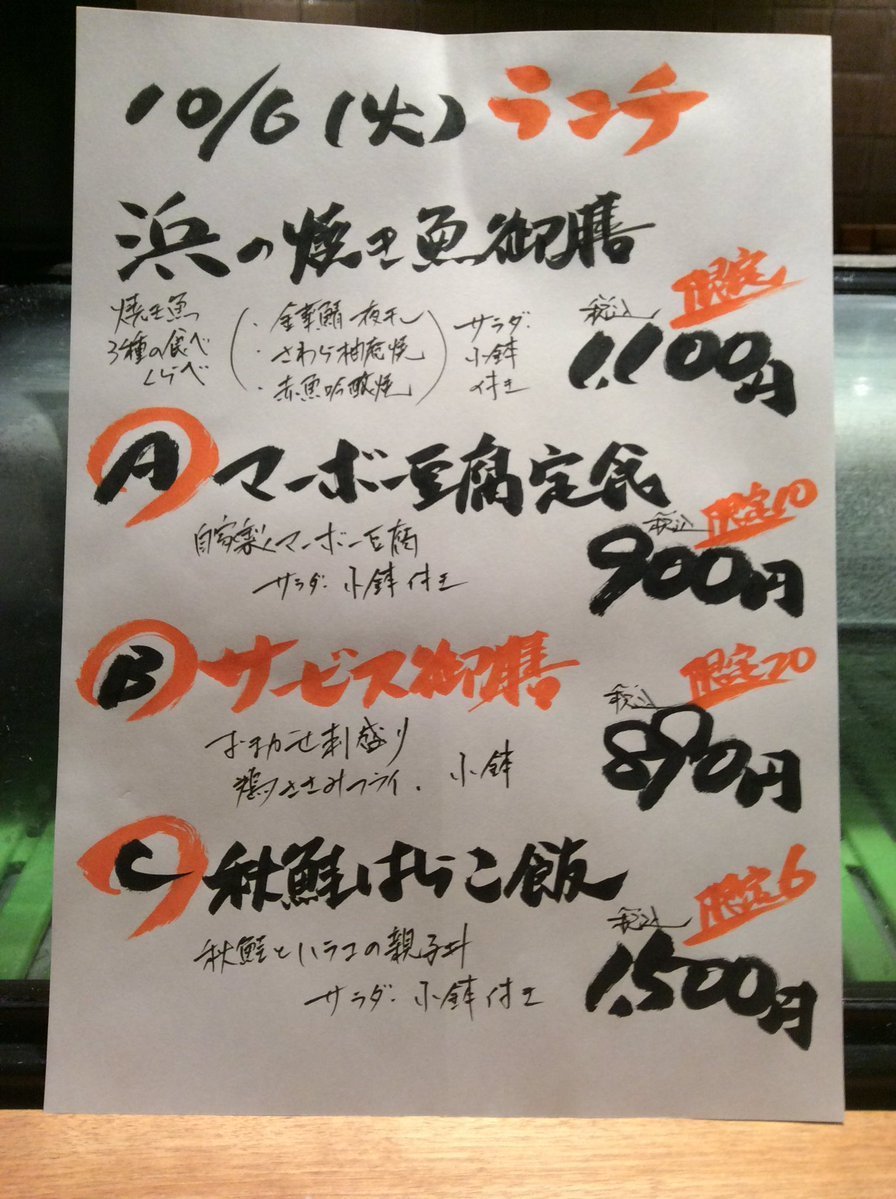 10/6(火) ランチ
浜の焼き魚御膳
限定
焼き魚
3種の食べ
くらべ
・金華鯖一夜干し
・さわら柚庵焼
・赤魚吟醸焼
サラダ・
小鉢
付き
税込
1,100円
A マーボー豆腐定食
限定10
自家製マーボー豆腐
サラダ・小鉢付き
税込
900円
B サービス御膳
限定20
おまかせ刺盛り
鶏ささみフライ・小鉢
税込
890円
C 秋鮭はらこ飯
限定6
秋鮭とハラコの親子丼
サラダ・小鉢付き
税込
1,500円